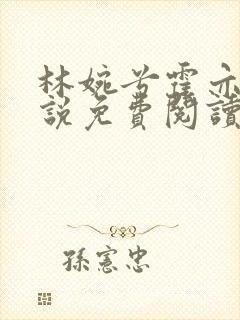 林婉兮霍亦
說免費閱讀
孫憲忠